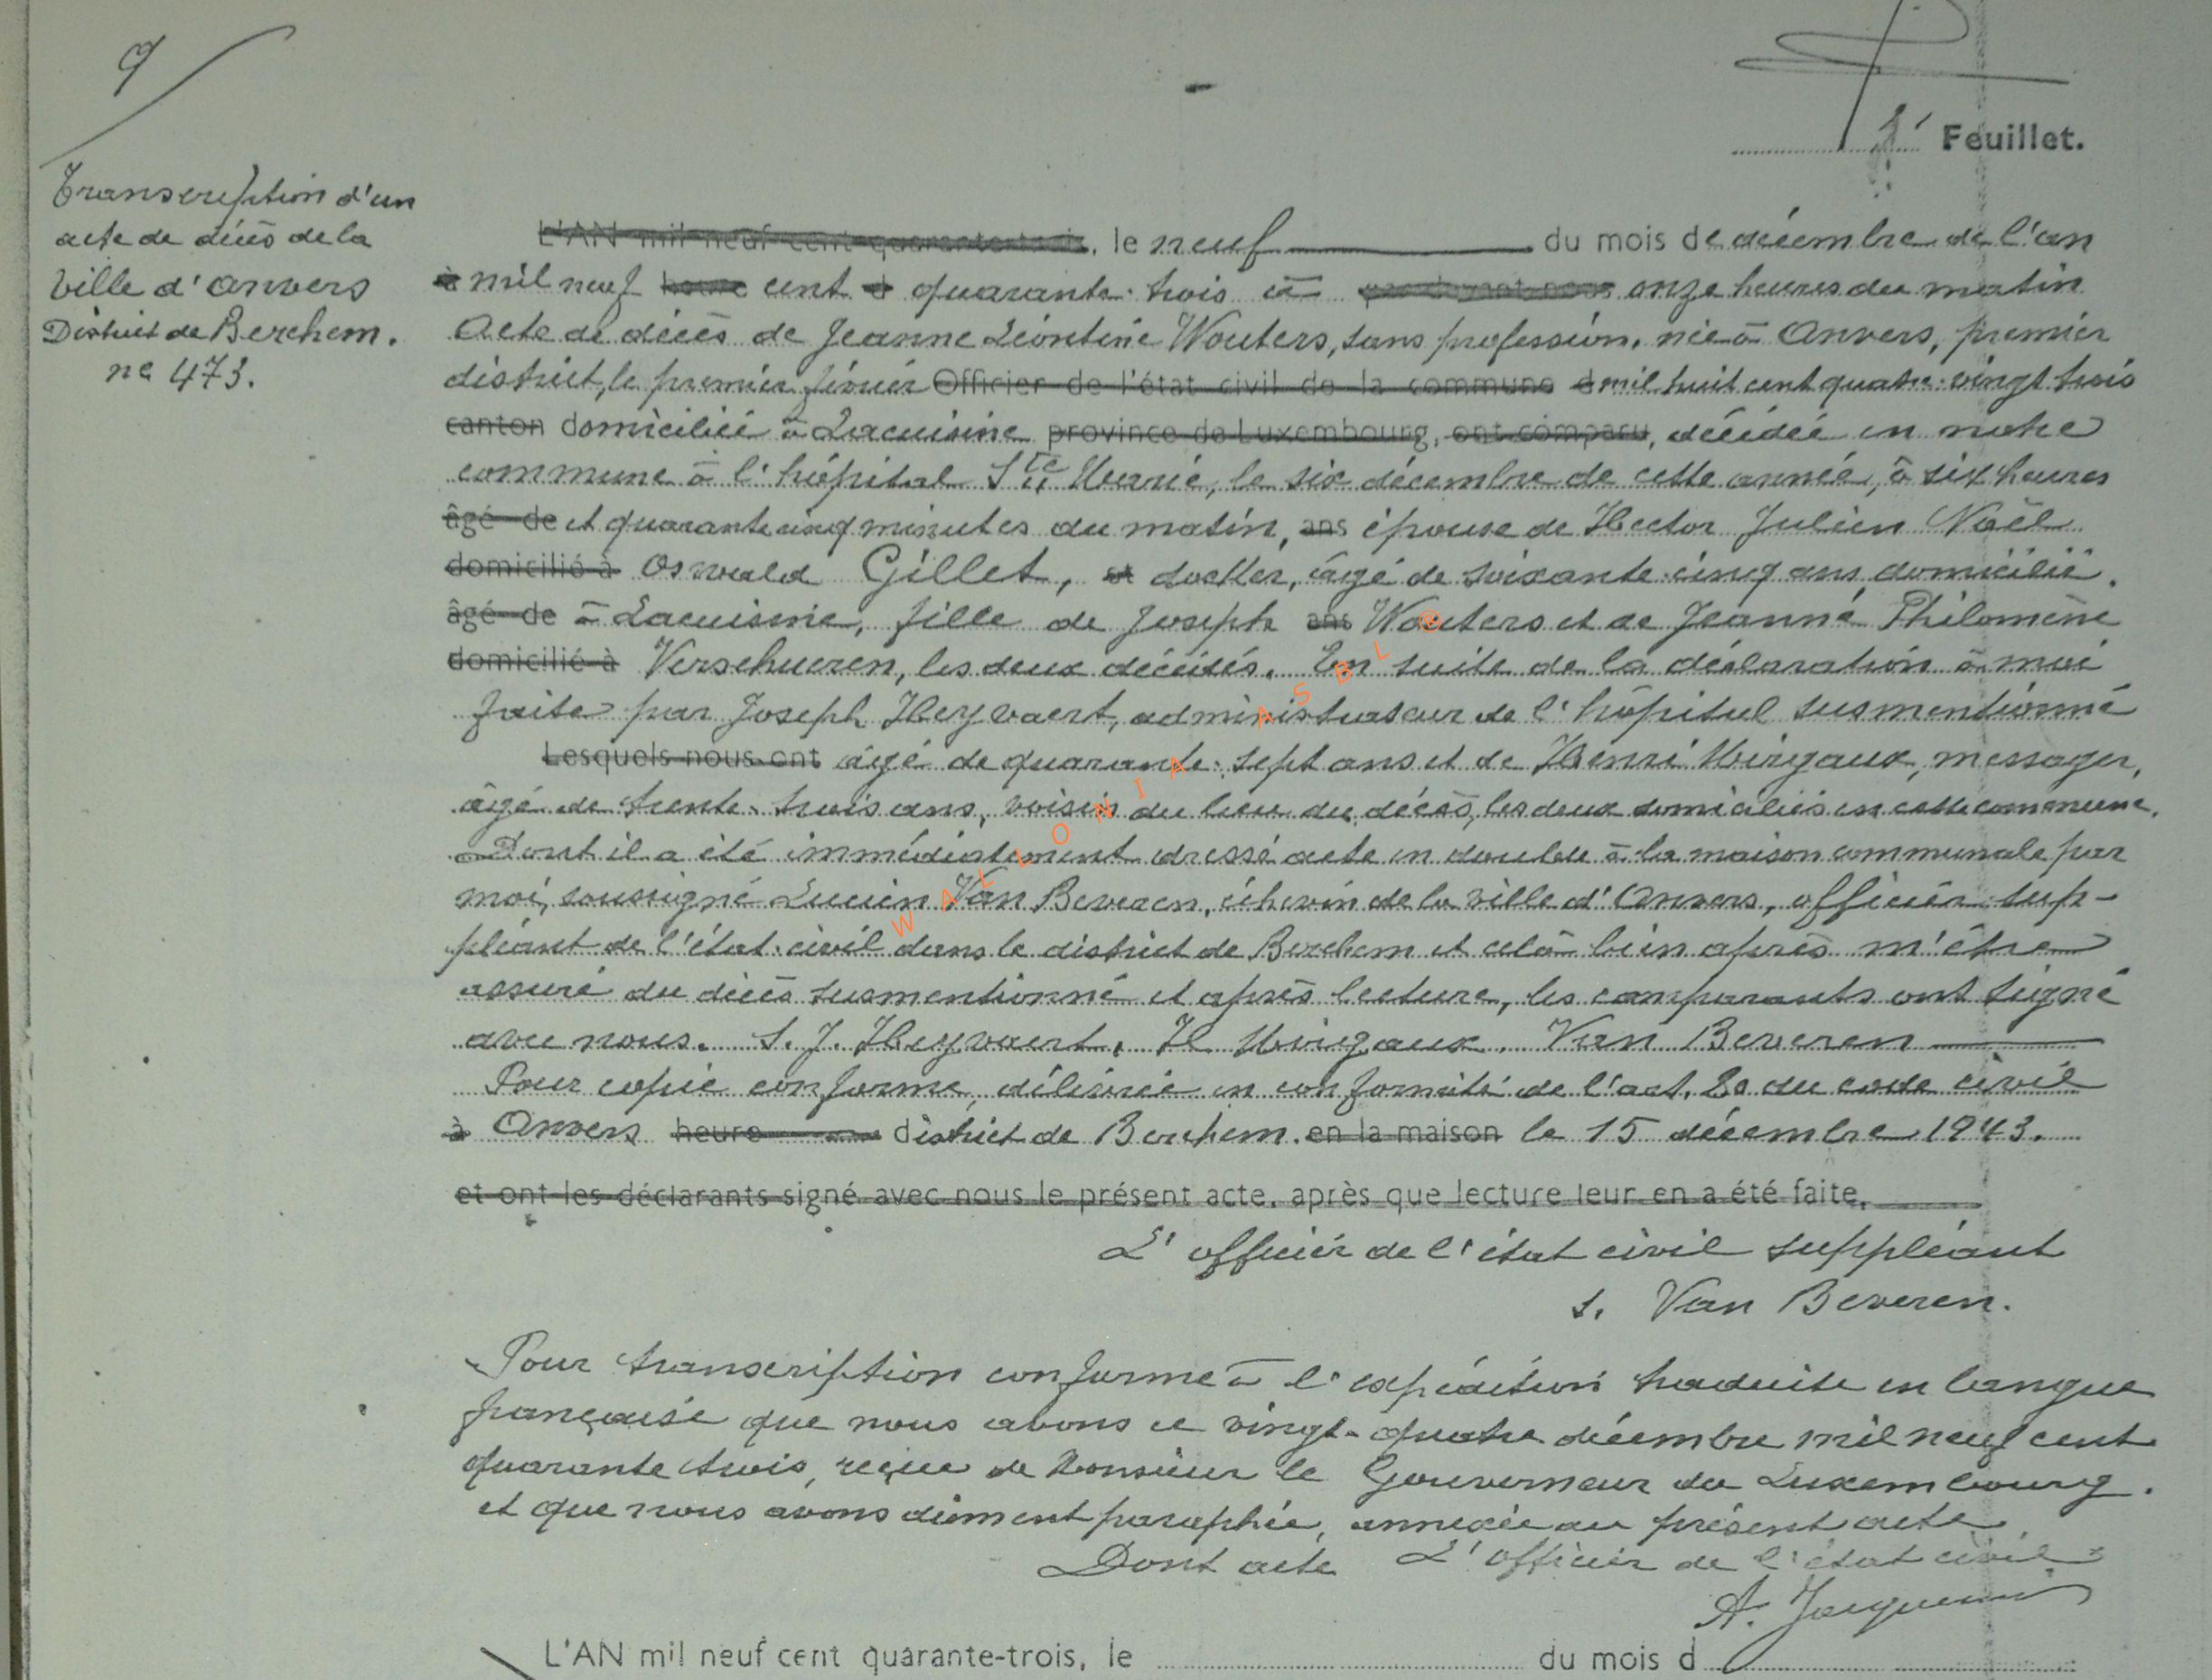 9
Feuillet.
Transcription d'un
acte de décès de la
Ville d'Anvers
District de Berchem.
no 473.
L'AN mil neuf cent quarante-trois, le neuf du mois de décembre de l'an
à mil neuf heure cent et quarante-trois à par devant nous onze heures du matin
Acte de décès de Jeanne Léontine Wouters, sans profession, née à Anvers, premier
district, le premier février Officier de l'état civil de la commune d mil huit cent quatre-vingt trois
canton domiciliée à Lacuisine province de Luxembourg, ont comparu, décédée en notre
commune à l'hôpital Ste Marie, le six décembre de cette année, à six heures
âgé de et quarante cinq minutes du matin, ans épouse de Hector Julien Noël
domicilié à Oswald Gillet, et docteur, âgé de soixante-cinq ans, domicilié
âgé de à Lacuisine, fille de Joseph ans Wouters et de Jeanne Philomène
domicilié à Verschueren, les deux décédés. En suite de la déclaration à moi
faite par Joseph Heyvaert, administrateur de l'hôpital susmentionné
Lesquels nous ont âgé de quarante-sept ans et de Henri Mirgaux, messager,
âgé de trente-trois ans, voisin du lieu du décès, les deux domiciliés en cette commune.
Dont il a été immédiatement dressé acte en double à la maison communale par
moi, soussigné Lucien Van Beveren, échevin de la ville d'Anvers, officier sup-
pléant de l'état-civil dans le district de Berchem et celà bien après m'être
assuré du décès susmentionné et après lecture, les comparants ont signé
avec nous. S. J. Heyvaert, H Mirgaux. Van Beveren
Pour copie conforme, délivrée en conformité de l'art. 80 du code civil
à Anvers heure district de Berchem. en la maison le 15 décembre 1943.
et ont les déclarants signé avec nous le présent acte, après que lecture leur en a été faite,
L'officier de l'état civil suppléant
s. Van Beveren.
Pour transcription conforme à l'expédition traduite en langue
française que nous avons ce vingt-quatre décembre mil neuf cent
quarante trois, reçue de Monsieur le Gouverneur du Luxembourg.
et que nous avons dûment paraphée, annexée au présent acte.
Dont acte L'officier de l'état civil
A. Jacquemin
L'AN mil neuf cent quarante-trois, le du mois d
WALLONIA ASBL ©